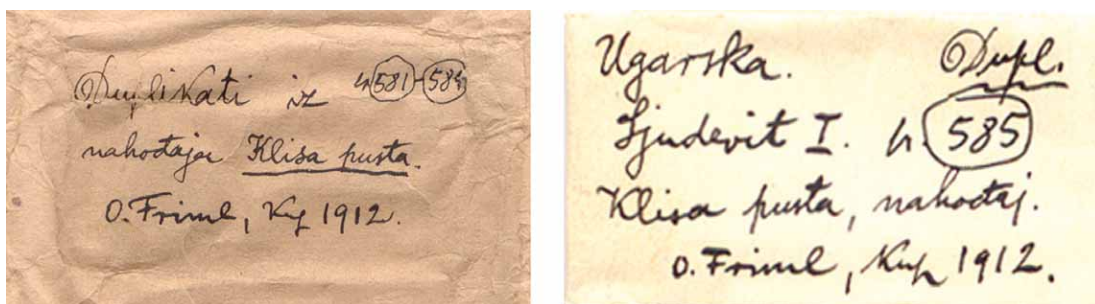 Duplikati iz br 581-584
nahođaja Klisa pusta.
O. Friml, Kup 1912.
Ugarska. Dupl.
Ljudevit I. br. 585
Klisa pusta, nahođaj.
O. Friml, Kup 1912.